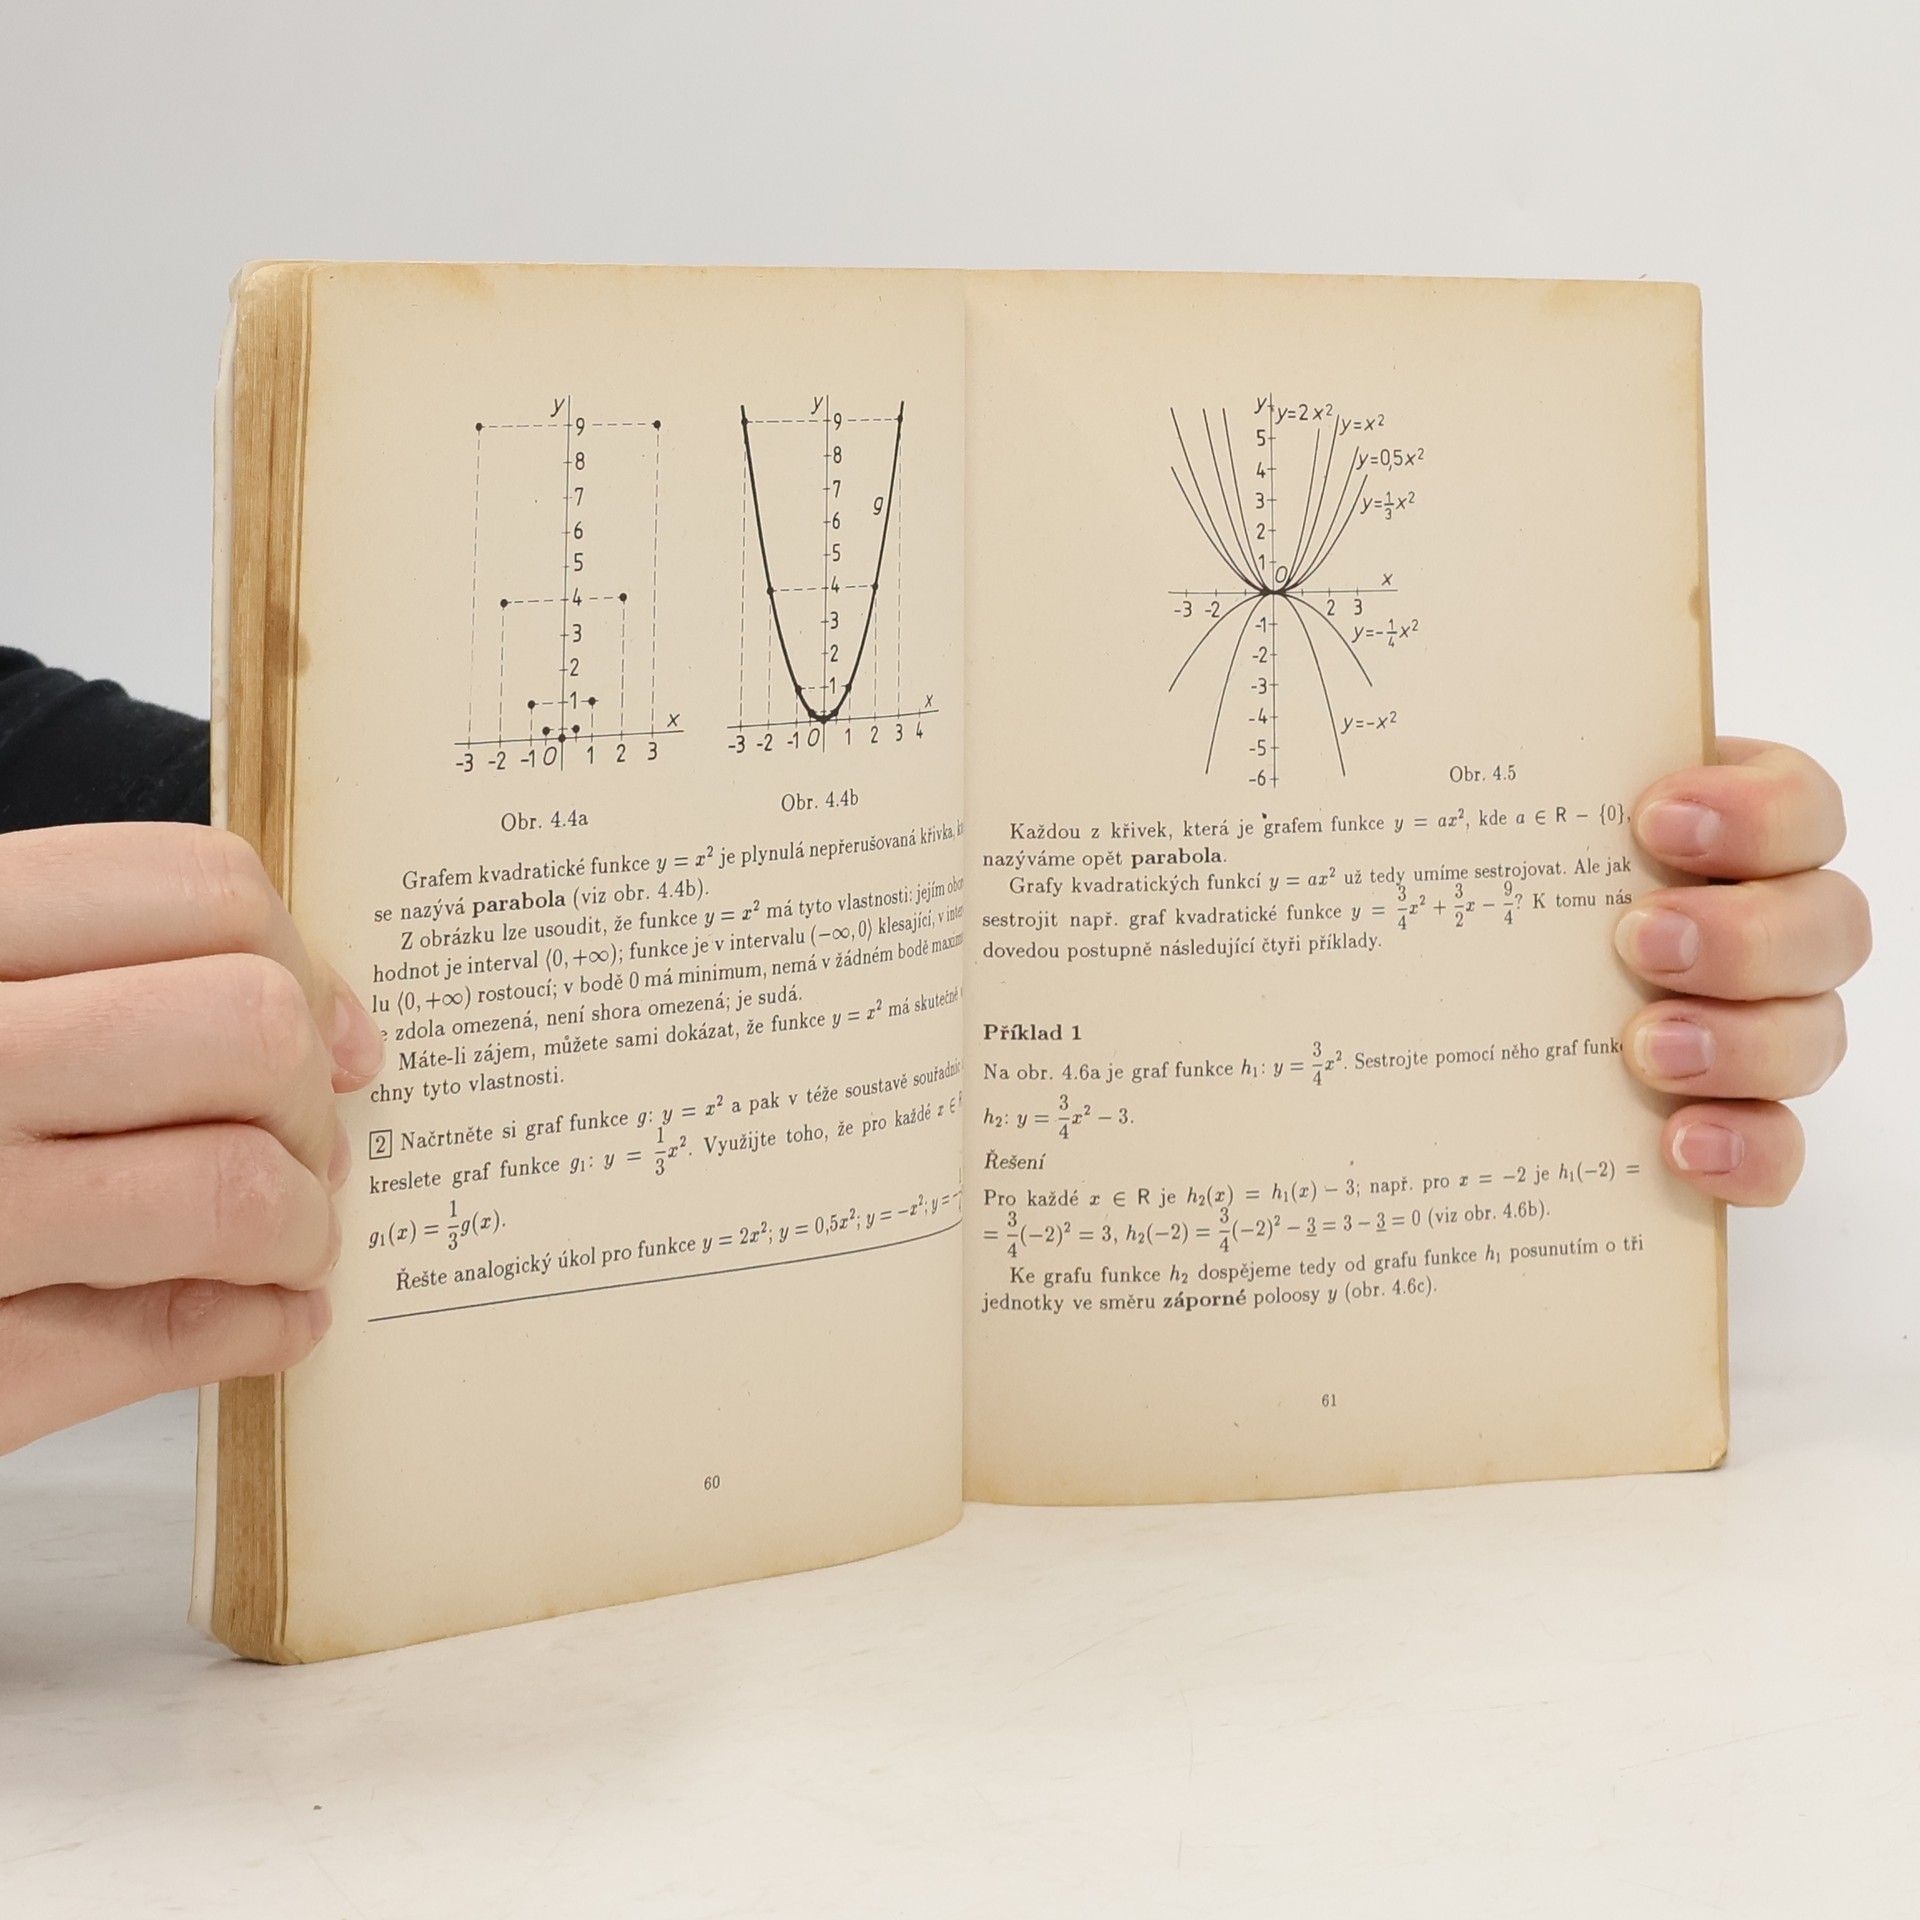 y
9
8
7
6
5
4
3
2
1
x
-3 -2 -1 0 1 2 3
Obr. 4.4a
y
9
8
7
g
6
5
4
3
2
1
x
-3 -2 -1 0 1 2 3 4
Obr. 4.4b
Grafem kvadratické funkce y = x² je plynulá nepřerušovaná křivka,
se nazývá parabola (viz obr. 4.4b).
Z obrázku lze usoudit, že funkce y = x² má tyto vlastnosti: jejím
hodnot je interval ⟨0, +∞); funkce je v intervalu (−∞, 0⟩ klesající, v
lu ⟨0, +∞) rostoucí; v bodě 0 má minimum, nemá v žádném bodě
zdola omezená, není shora omezená; je sudá.
Máte-li zájem, můžete sami dokázat, že funkce y = x² má skutečně
chny tyto vlastnosti.
2 Načrtněte si graf funkce g: y = x² a pak v téže soustavě
kreslete graf funkce g₁: y = 1/3 x². Využijte toho, že pro každé x ∈
g₁(x) = 1/3 g(x).
Řešte analogický úkol pro funkce y = 2x²; y = 0,5x²; y = −x²; y = −
60
y y=2x² y=x²
5
y=0,5x²
4
3 y=1/3 x²
2
1
0 x
-3 -2 2 3
-1 y=-1/4 x²
-2
-3
-4 y=-x²
-5
-6
Obr. 4.5
Každou z křivek, která je grafem funkce y = ax², kde a ∈ R − {0},
nazýváme opět parabola.
Grafy kvadratických funkcí y = ax² už tedy umíme sestrojovat. Ale jak
sestrojit např. graf kvadratické funkce y = 3/4 x² + 3/2 x − 9/4? K tomu nás
dovedou postupně následující čtyři příklady.
Příklad 1
Na obr. 4.6a je graf funkce h₁: y = 3/4 x². Sestrojte pomocí něho graf
h₂: y = 3/4 x² − 3.
Řešení
Pro každé x ∈ R je h₂(x) = h₁(x) − 3; např. pro x = −2 je h₁(−2) =
= 3/4 (−2)² = 3, h₂(−2) = 3/4 (−2)² − 3 = 3 − 3 = 0 (viz obr. 4.6b).
Ke grafu funkce h₂ dospějeme tedy od grafu funkce h₁ posunutím o tři
jednotky ve směru záporné poloosy y (obr. 4.6c).
61